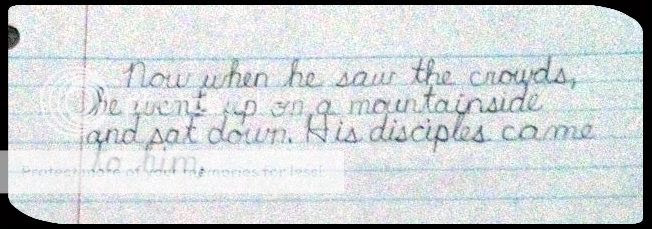 Now when he saw the crowds,
he went up on a mountainside
and sat down. His disciples came
to him.
Protect more of your memories for less!